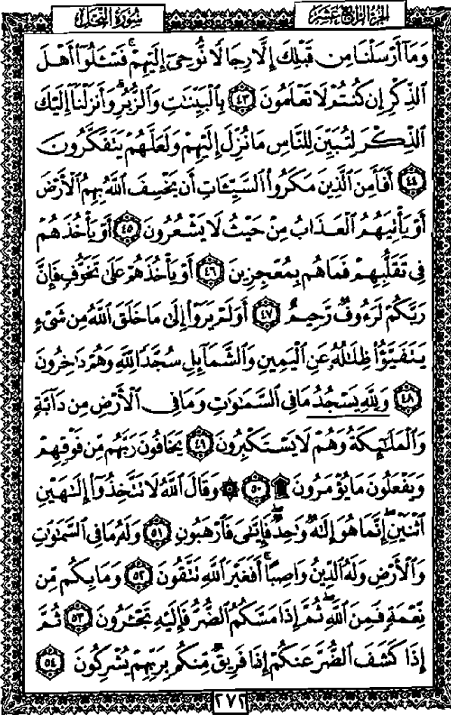 الجزء الرابع عشر
سورة النحل
وَمَآ أَرْسَلْنَا مِن قَبْلِكَ إِلَّا رِجَالًا نُّوحِىٓ إِلَيْهِمْ ۚ فَسْـَٔلُوٓا۟ أَهْلَ
ٱلذِّكْرِ إِن كُنتُمْ لَا تَعْلَمُونَ ٤٣ بِٱلْبَيِّنَـٰتِ وَٱلزُّبُرِ ۗ وَأَنزَلْنَآ إِلَيْكَ
ٱلذِّكْرَ لِتُبَيِّنَ لِلنَّاسِ مَا نُزِّلَ إِلَيْهِمْ وَلَعَلَّهُمْ يَتَفَكَّرُونَ
٤٤ أَفَأَمِنَ ٱلَّذِينَ مَكَرُوا۟ ٱلسَّيِّـَٔاتِ أَن يَخْسِفَ ٱللَّهُ بِهِمُ ٱلْأَرْضَ
أَوْ يَأْتِيَهُمُ ٱلْعَذَابُ مِنْ حَيْثُ لَا يَشْعُرُونَ ٤٥ أَوْ يَأْخُذَهُمْ
فِى تَقَلُّبِهِمْ فَمَا هُم بِمُعْجِزِينَ ٤٦ أَوْ يَأْخُذَهُمْ عَلَىٰ تَخَوُّفٍ فَإِنَّ
رَبَّكُمْ لَرَءُوفٌ رَّحِيمٌ ٤٧ أَوَلَمْ يَرَوْا۟ إِلَىٰ مَا خَلَقَ ٱللَّهُ مِن شَىْءٍ
يَتَفَيَّؤُا۟ ظِلَـٰلُهُۥ عَنِ ٱلْيَمِينِ وَٱلشَّمَآئِلِ سُجَّدًا لِّلَّهِ وَهُمْ دَٰخِرُونَ
٤٨ وَلِلَّهِ يَسْجُدُ مَا فِى ٱلسَّمَـٰوَٰتِ وَمَا فِى ٱلْأَرْضِ مِن دَآبَّةٍ
وَٱلْمَلَـٰٓئِكَةُ وَهُمْ لَا يَسْتَكْبِرُونَ ٤٩ يَخَافُونَ رَبَّهُم مِّن فَوْقِهِمْ
وَيَفْعَلُونَ مَا يُؤْمَرُونَ ۩ ٥٠ ۞ وَقَالَ ٱللَّهُ لَا تَتَّخِذُوٓا۟ إِلَـٰهَيْنِ
ٱثْنَيْنِ ۖ إِنَّمَا هُوَ إِلَـٰهٌ وَٰحِدٌ ۖ فَإِيَّـٰىَ فَٱرْهَبُونِ ٥١ وَلَهُۥ مَا فِى ٱلسَّمَـٰوَٰتِ
وَٱلْأَرْضِ وَلَهُ ٱلدِّينُ وَاصِبًا ۚ أَفَغَيْرَ ٱللَّهِ تَتَّقُونَ ٥٢ وَمَا بِكُم مِّن
نِّعْمَةٍ فَمِنَ ٱللَّهِ ۖ ثُمَّ إِذَا مَسَّكُمُ ٱلضُّرُّ فَإِلَيْهِ تَجْـَٔرُونَ ٥٣ ثُمَّ
إِذَا كَشَفَ ٱلضُّرَّ عَنكُمْ إِذَا فَرِيقٌ مِّنكُم بِرَبِّهِمْ يُشْرِكُونَ ٥٤
٢٧٢